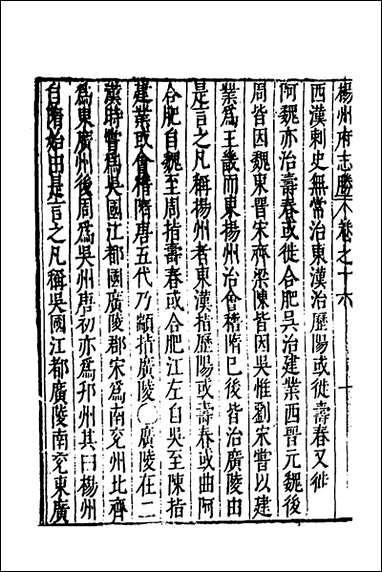 楊州府志勝 卷之十六
西漢刺史無常治東漢治歷陽或徙壽春又徙
阿魏亦治壽春或徙合肥吳治建業西晉元魏後
周皆因魏東晉宋齊梁陳皆因吳惟劉宋嘗以建
業爲王畿而東揚州治會稽隋已後皆治廣陵由
是言之凡稱揚州者東漢指歷陽或壽春或曲阿
合肥自魏至周指壽春或合肥江左自吳至陳指
建業或會稽隋唐五代乃顓指廣陵〇廣陵在二
漢時嘗爲吳國江都國廣陵郡宋爲南兗州北齊
爲東廣州後周爲吳州唐初亦爲邗州其曰楊州
自隋始由是言之凡稱吳國江都廣陵南兗東廣